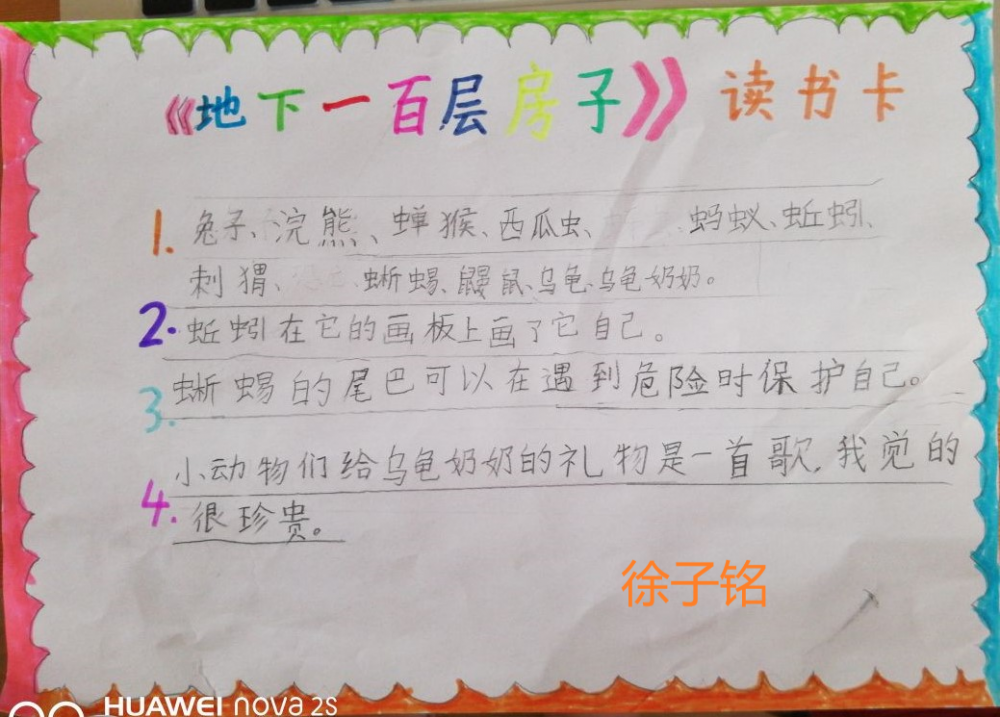 《地下一百层房子》读书卡
1. 兔子、浣熊、蝉猴、西瓜虫、蚂蚁、蚯蚓、
刺猬、蜥蜴、鼹鼠、乌龟、乌龟奶奶。
2. 蚯蚓在它的画板上画了它自己。
3. 蜥蜴的尾巴可以在遇到危险时保护自己。
4. 小动物们给乌龟奶奶的礼物是一首歌，我觉的
很珍贵。
徐子铭
HUAWEI nova 2S